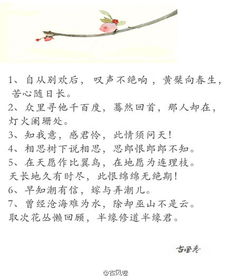 1、自从别欢后，叹声不绝响，黄檗向春生，
苦心随日长。
2、众里寻他千百度，蓦然回首，那人却在，
灯火阑珊处。
3、知我意，感君怜，此情须问天！
4、相思树下说相思，思郎恨郎郎不知。
5、在天愿作比翼鸟，在地愿为连理枝。
天长地久有时尽，此恨绵绵无绝期！
6、早知潮有信，嫁与弄潮儿。
7、曾经沧海难为水，除却巫山不是云。
取次花丛懒回顾，半缘修道半缘君。